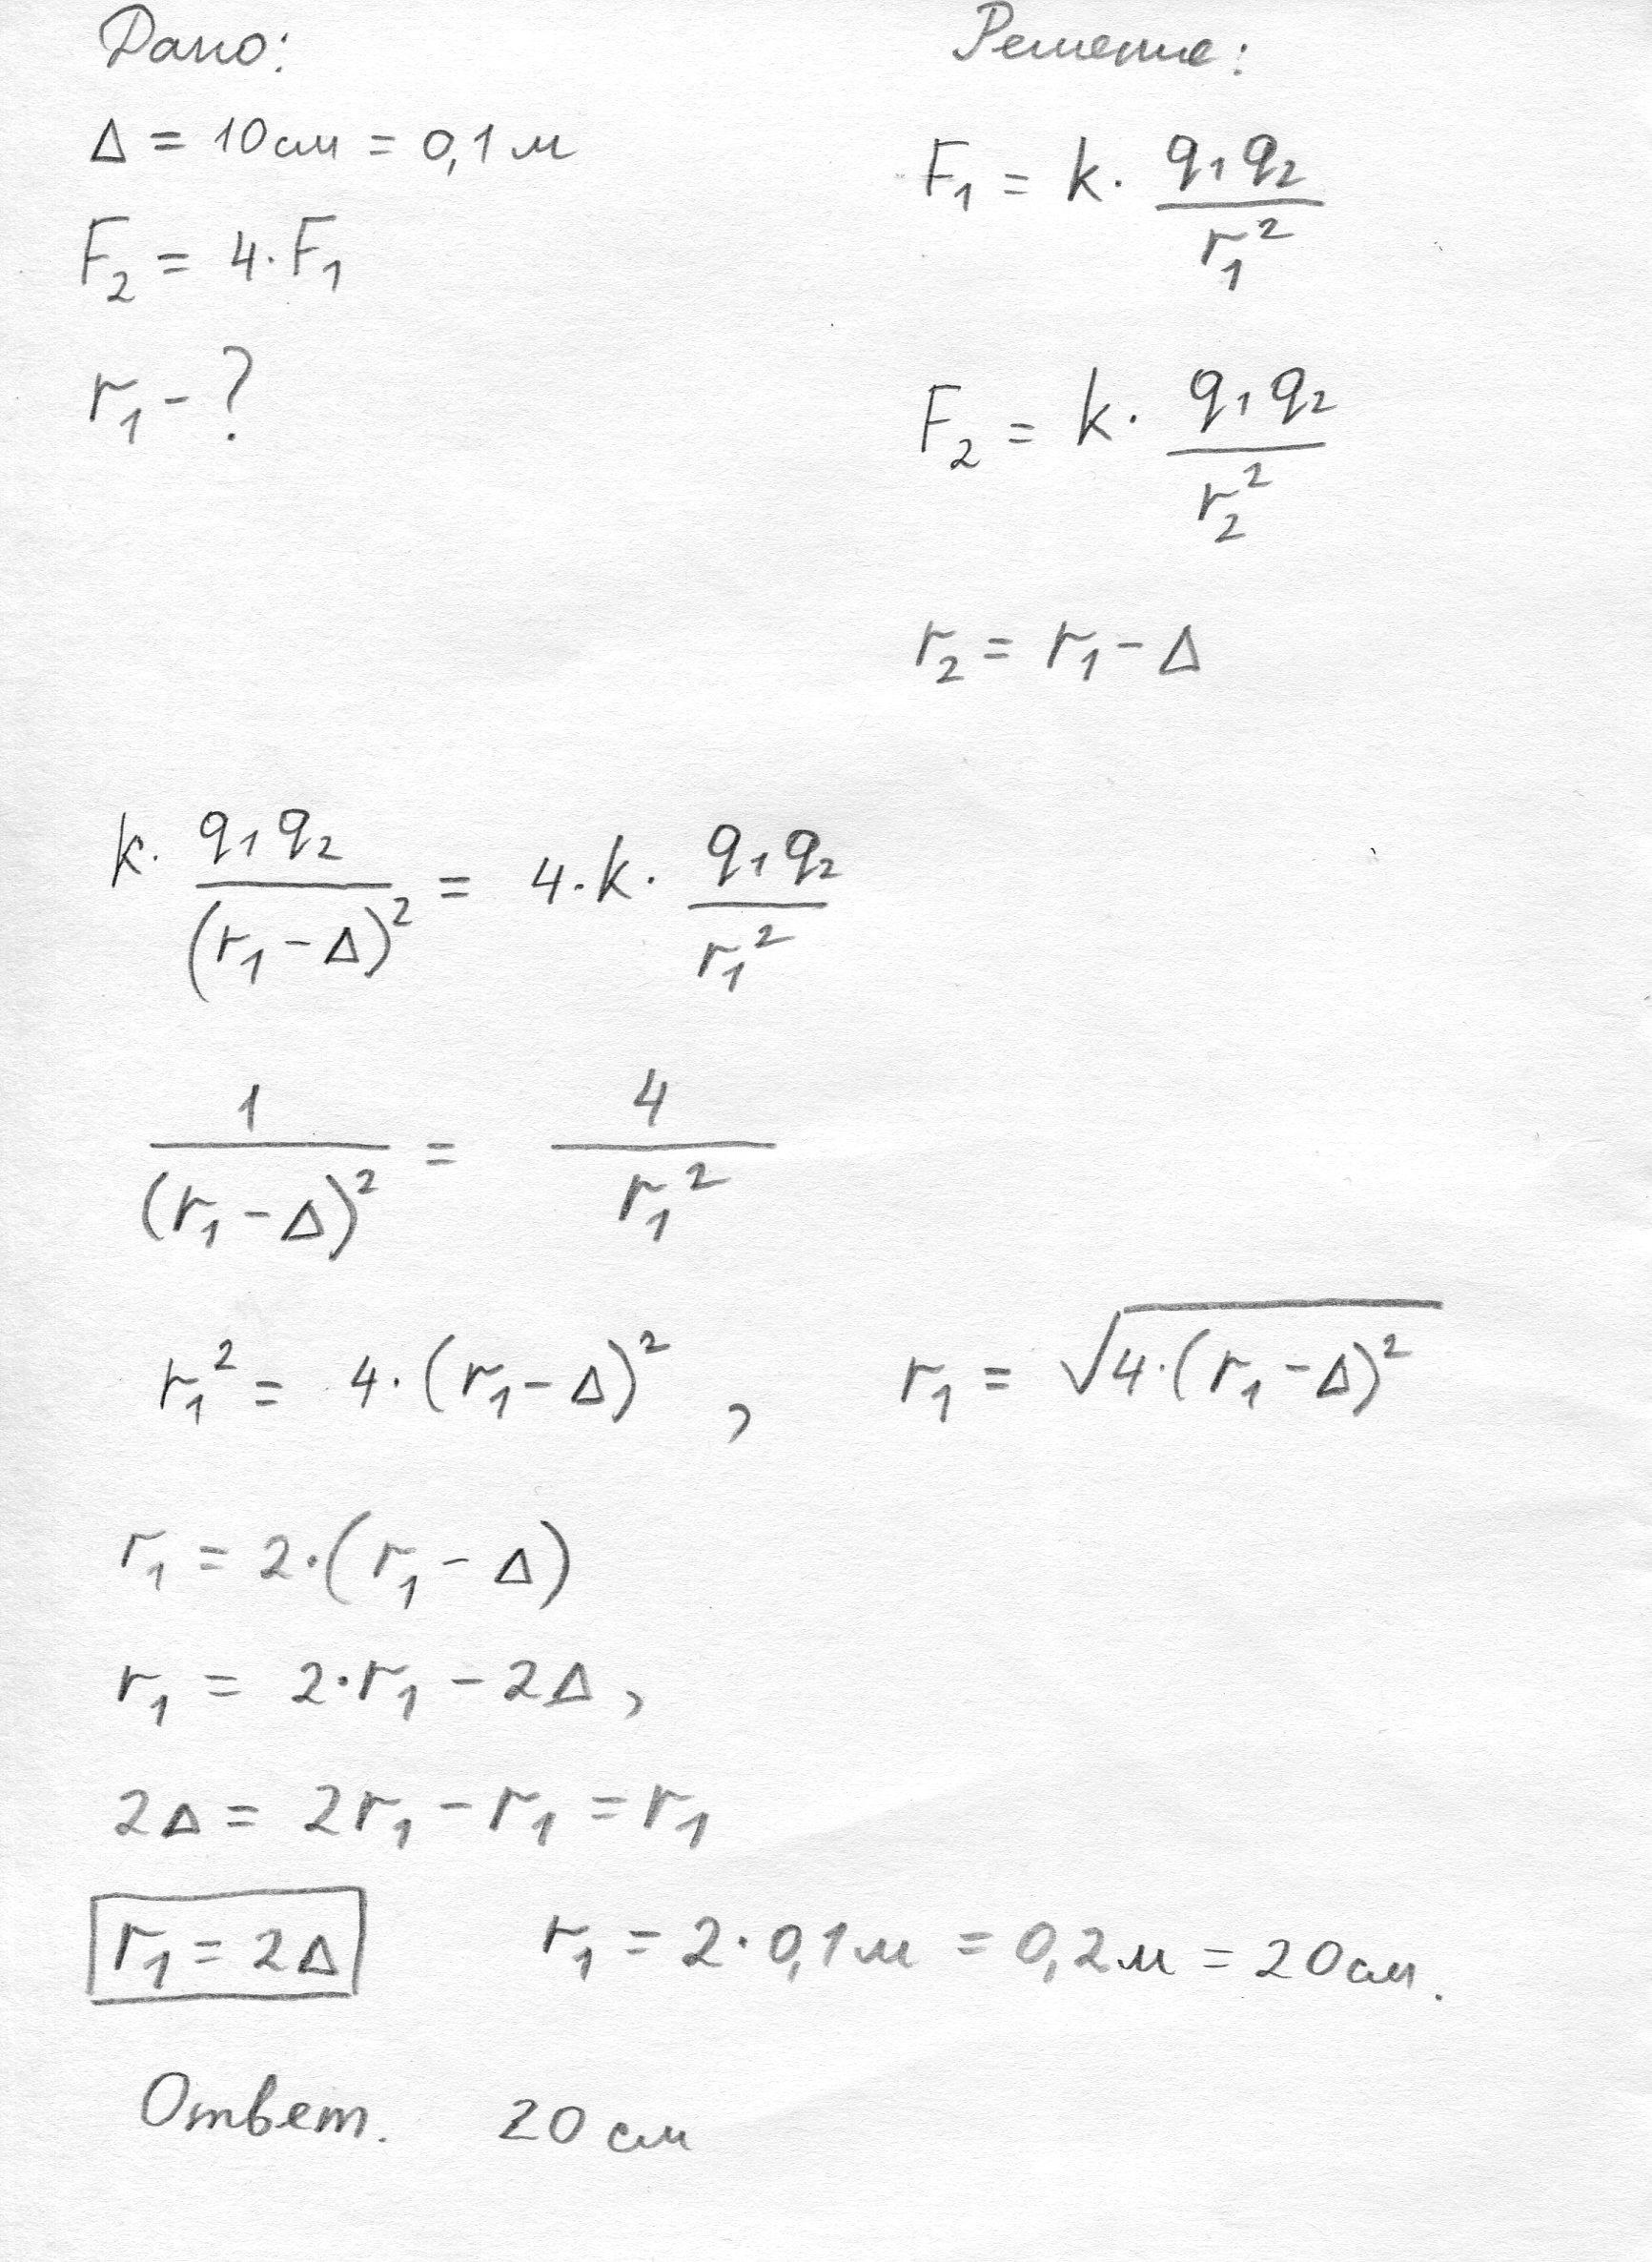 Дано:
Δ = 10 см = 0,1 м
F₂ = 4·F₁
r₁ - ?
Решение:
F₁ = k · q₁q₂ / r₁²
F₂ = k · q₁q₂ / r₂²
r₂ = r₁ - Δ
k · q₁q₂ / (r₁ - Δ)² = 4·k · q₁q₂ / r₁²
1 / (r₁ - Δ)² = 4 / r₁²
r₁² = 4·(r₁ - Δ)² , r₁ = √(4·(r₁ - Δ)²)
r₁ = 2·(r₁ - Δ)
r₁ = 2·r₁ - 2Δ,
2Δ = 2r₁ - r₁ = r₁
r₁ = 2Δ r₁ = 2·0,1 м = 0,2 м = 20 см.
Ответ. 20 см